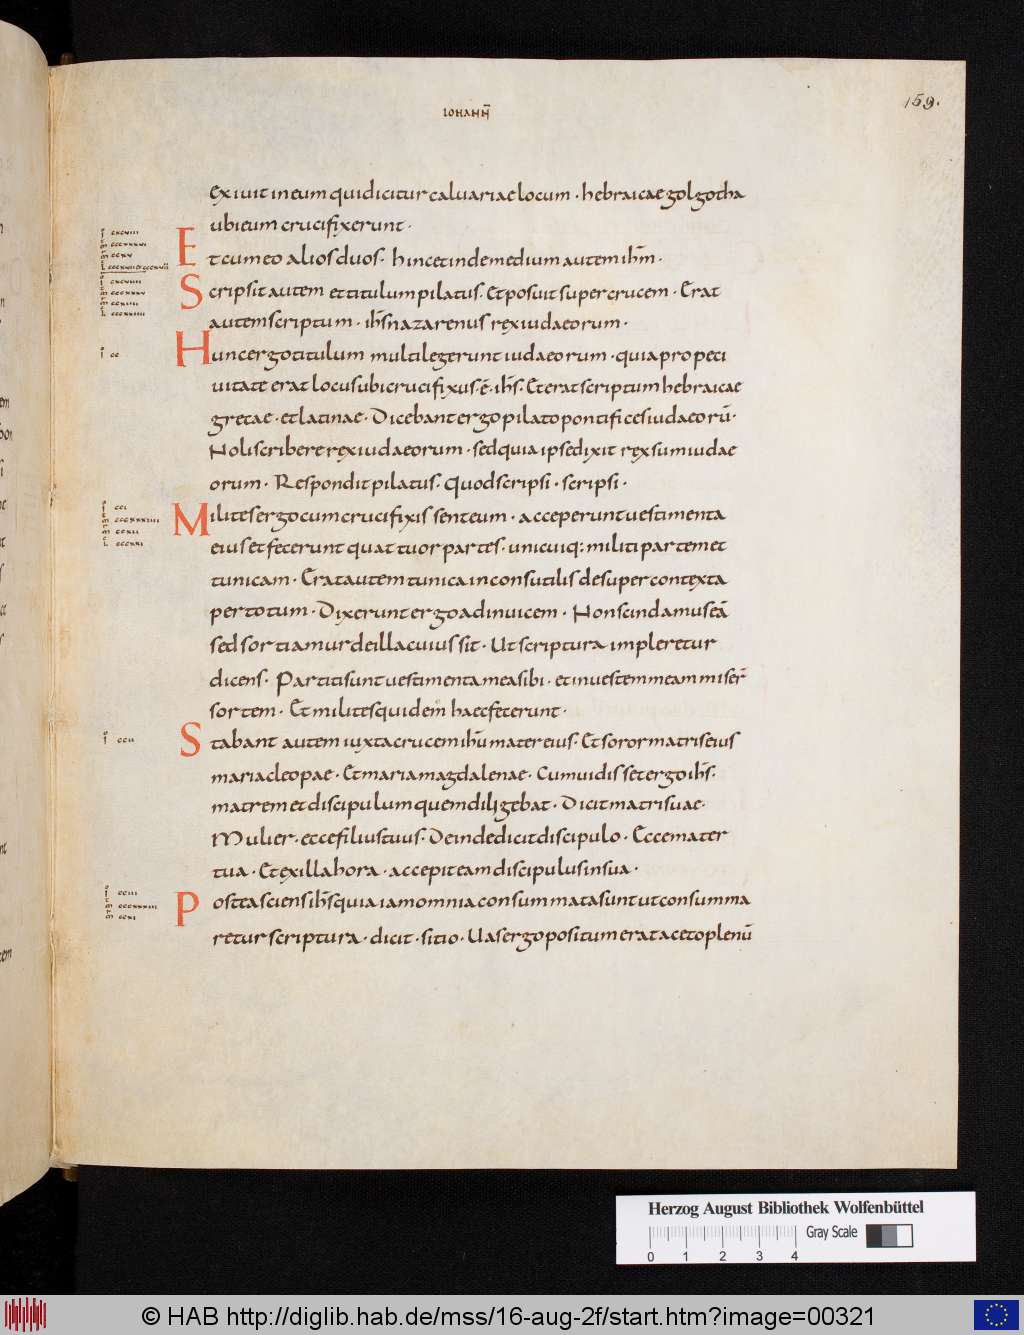 IOHANN̄
159.
exiuit in eum qui dicitur caluariae locum · hebraicae golgotha
ubi eum crucifixerunt ·
Et cum eo alios duos · hinc et inde medium autem ihm̄ ·
Scripsit autem et titulum pilatus · Et posuit super crucem · Erat
autem scriptum · ihs̄ nazarenus rex iudaeorum ·
Hunc ergo titulum multi legerunt iudaeorum · quia prope ci
uitate erat locus ubi crucifixus · ē · ihs̄ · Et erat scriptum hebraicae
grecae · et latinae · Dicebant ergo pilato pontifices iudaeorū ·
Noli scribere rex iudaeorum · sed quia ipse dixit rex sum iudae
orum · Respondit pilatus · Quod scripsi · scripsi ·
Milites ergo cum crucifixissent eum · acceperunt uestimenta
eius et fecerunt quattuor partes · unicuiq: militi partem et
tunicam · Erat autem tunica inconsutilis desuper contexta
per totum · Dixerunt ergo ad inuicem · Non scindamus eā
sed sortiamur de illa cuius sit · Ut scriptura impleretur
dicens · Partiti sunt uestimenta mea sibi · et in uestem meam miser̄
sortem · Et milites quidem haec fecerunt ·
Stabant autem iuxta crucem ihū mater eius · Et soror matris eius
maria cleopae · Et maria magdalenae · Cum uidisset ergo ihs̄ ·
matrem et discipulum quem diligebat · Dicit matri suae ·
Mulier · ecce filius tuus · Deinde dicit discipulo · Ecce mater
tua · Et ex illa hora · accepit eam discipulus in sua ·
Postea sciens ihs̄ quia iam omnia consummata sunt ut consumma
retur scriptura · dicit · sitio · Uas ergo positum erat aceto plenū
Herzog August Bibliothek Wolfenbüttel
Gray Scale
0 1 2 3 4
© HAB http://diglib.hab.de/mss/16-aug-2f/start.htm?image=00321